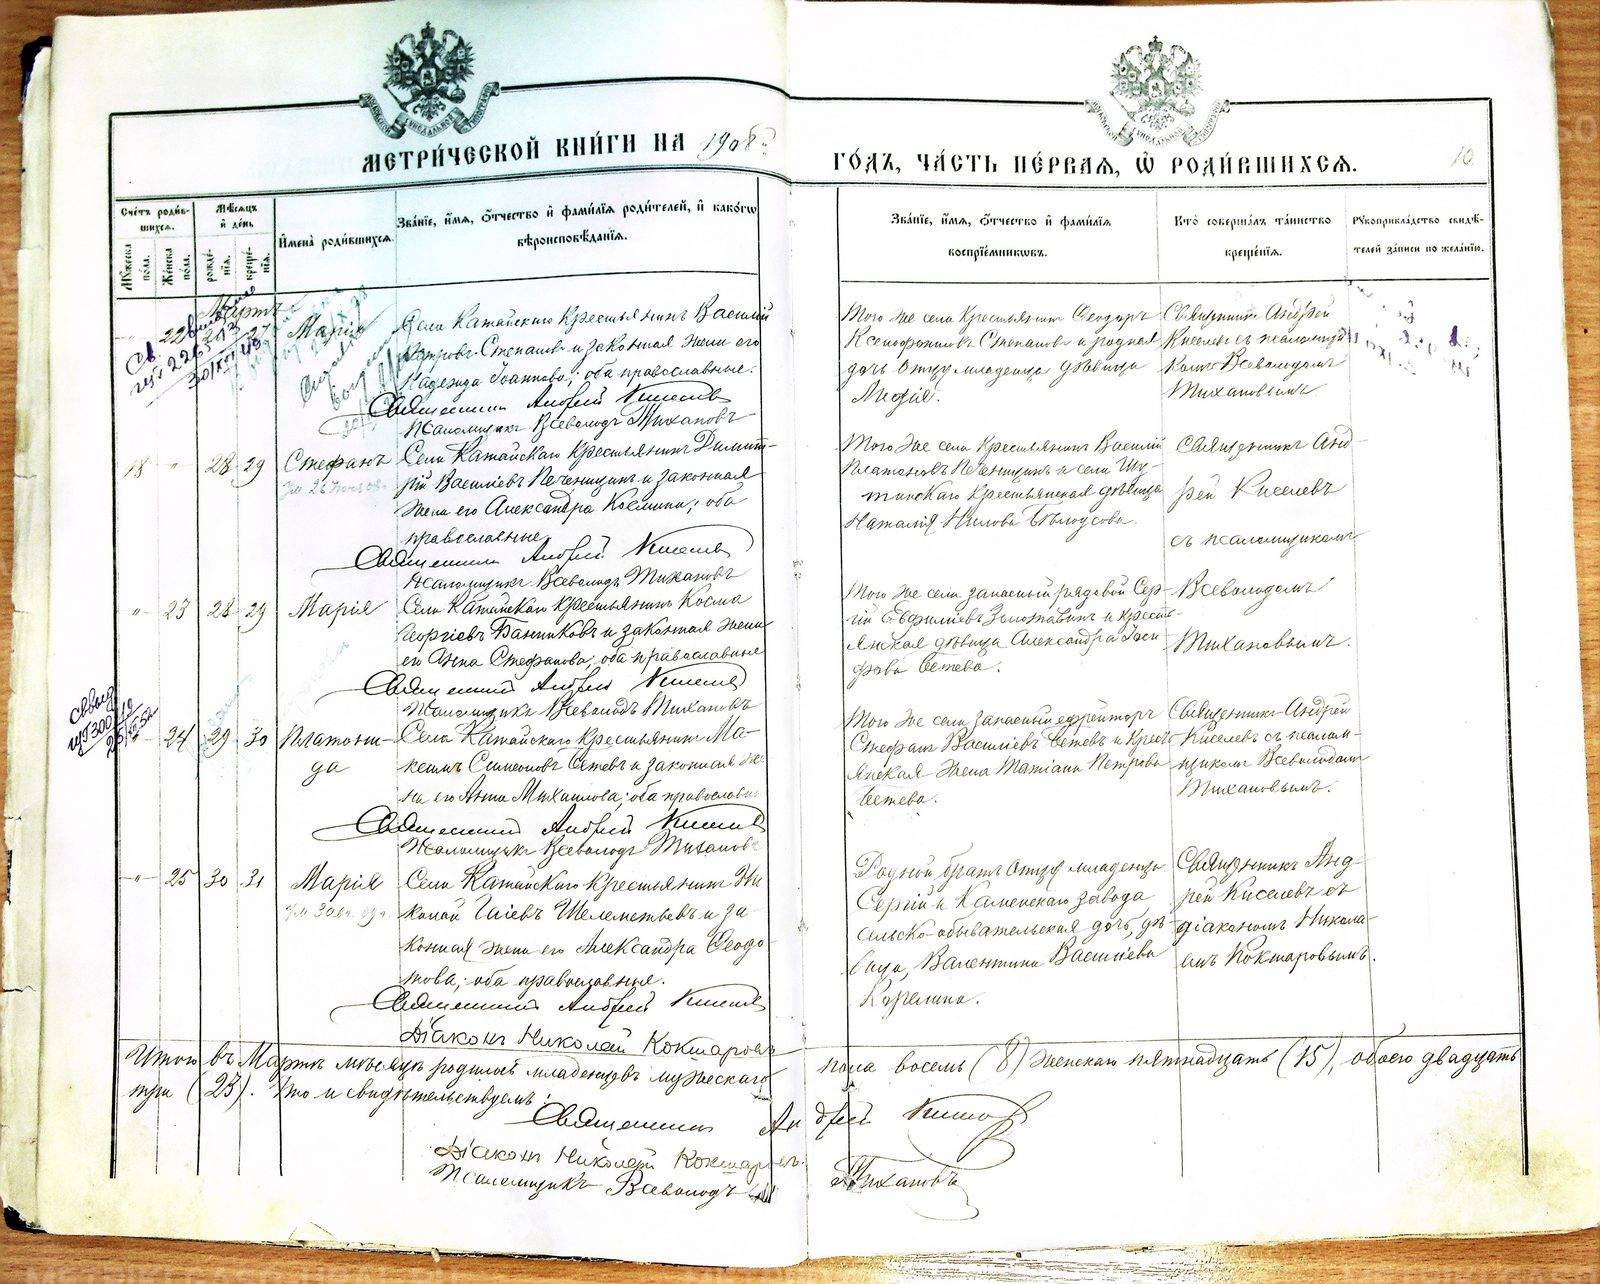 МЕТРИ́ЧЕСКОЙ КНИ́ГИ НА 1908й ГО́ДЪ, ЧА́СТЬ ПЕ́РВАЯ, Ѡ РОДИ́ВШИХСЯ.
10
Сче́тъ роди́в-
шихся.
Му́жеска по́ла.
Же́нска по́ла.
Мѣ́сяцъ
и҆ де́нь
рожде́-
нїя.
креще́-
нїя.
И҆мена̀ роди́вшихся.
Зва́нїе, и҆́мя, ѻ҆́тчество и҆ фами́лїя роди́телей, и҆ како́гѡ
вѣроисповѣ́данїя.
Зва́нїе, и҆́мя, ѻ҆́тчество и҆ фами́лїя
воспрїе́мникѡвъ.
Кто̀ соверша́лъ та́инство
креще́нїя.
Рꙋкоприкла́дство свидѣ́-
телей за́писи по жела́нїю.
Мартъ
22
27
Марія
Села Катайскаго крестьянинъ Василій
Петровъ Степановъ и законная жена его
Надежда Іоаннова; оба православные.
Священникъ Андрей Киселевъ
Псаломщикъ Всеволодъ Тихановъ
Того же села крестьянинъ Ѳеодоръ
Ксенофонтовъ Степановъ и родная
дочь отцу младенца дѣвица
Лидія.
Священникъ Андрей
Киселевъ съ псаломщи-
комъ Всеволодомъ
Тихановымъ.
18 " 28 29 Стефанъ
Села Катайскаго крестьянинъ Димит-
рій Васильевъ Печенкинъ и законная
жена его Александра Космина; оба
православные.
Священникъ Андрей Киселевъ
Псаломщикъ Всеволодъ Тихановъ
Того же села крестьянинъ Василій
Платоновъ Печенкинъ и села Шу-
тинскаго крестьянская дѣвица
Наталія Нилова Бѣлоусова.
Священникъ Анд-
рей Киселевъ
съ псаломщикомъ
Всеволодомъ
Тихановымъ.
" 23 28 29 Марія
Села Катайскаго крестьянинъ Косма
Георгіевъ Банниковъ и законная жена
его Анна Стефанова; оба православные
Священникъ Андрей Киселевъ
Псаломщикъ Всеволодъ Тихановъ
Того же села запасный рядовой Сер-
гій Евфиміевъ Золотавинъ и кресть-
янская дѣвица Александра Іоси-
фова Сетева.
" 24 29 30 Платони-
да
Села Катайскаго крестьянинъ Ма-
ксимъ Симеоновъ Сетевъ и законная же-
на его Анна Михаилова; оба православн.
Священникъ Андрей Киселевъ
Псаломщикъ Всеволодъ Тихановъ
Того же села запасный ефрейторъ
Стефанъ Васильевъ Сетевъ и крест-
янская жена Татіана Петрова
Сетева.
Священникъ Андрей
Киселевъ съ псалом-
щикомъ Всеволодомъ
Тихановымъ.
" 25 30 31 Марія
Села Катайскаго крестьянинъ Ни
колай Гаіевъ Шелементьевъ и за
конная жена его Александра Ѳеодо-
това; оба православные.
Священникъ Андрей Киселевъ
Діаконъ Николай Кокшаровъ
Родной братъ отцу младенца
Сергій и Каменскаго завода
сельско-обывательская дочь, дѣ-
вица, Валентина Васильева
Карелина.
Священникъ Анд-
рей Киселевъ съ
діакономъ Никола-
емъ Кокшаровымъ.
Итого въ Мартѣ мѣсяцѣ родилось младенцевъ мужескаго пола восемь (8) женскаго пятнадцать (15), обоего двадцать
три (23). Что и свидѣтельствуемъ:
Священникъ Андрей Киселевъ
Діаконъ Николай Кокшаровъ.
Псаломщикъ Всеволодъ Тихановъ